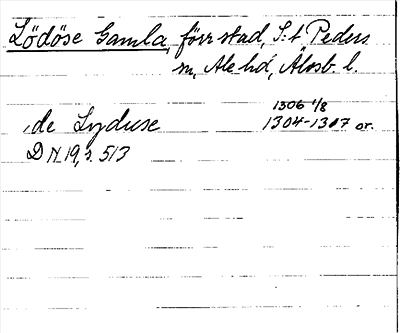 Lödöse Gamla, förr stad, S:t Peders
sn, Ale hd, Älvsb. l.
1306 1/8
de Lyduse 1304-1307 or.
D N 19, s. 513